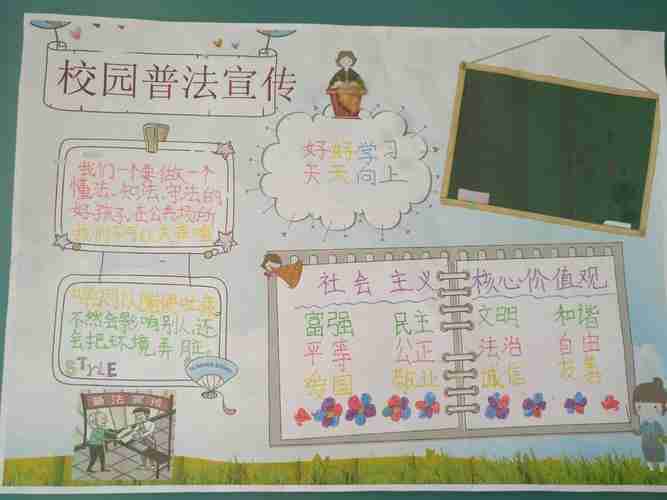 校园普法宣传
好好学习
天天向上
我们一个要做一个
懂法、知法、守法的
好孩子,在公共场所
我们
随便吐痰
不然会影响别人,还
会把环境弄脏。
STYLE
普法宣传
社会主义 核心价值观
富强 民主 文明 和谐
平等 公正 法治 自由
爱国 敬业 诚信 友善